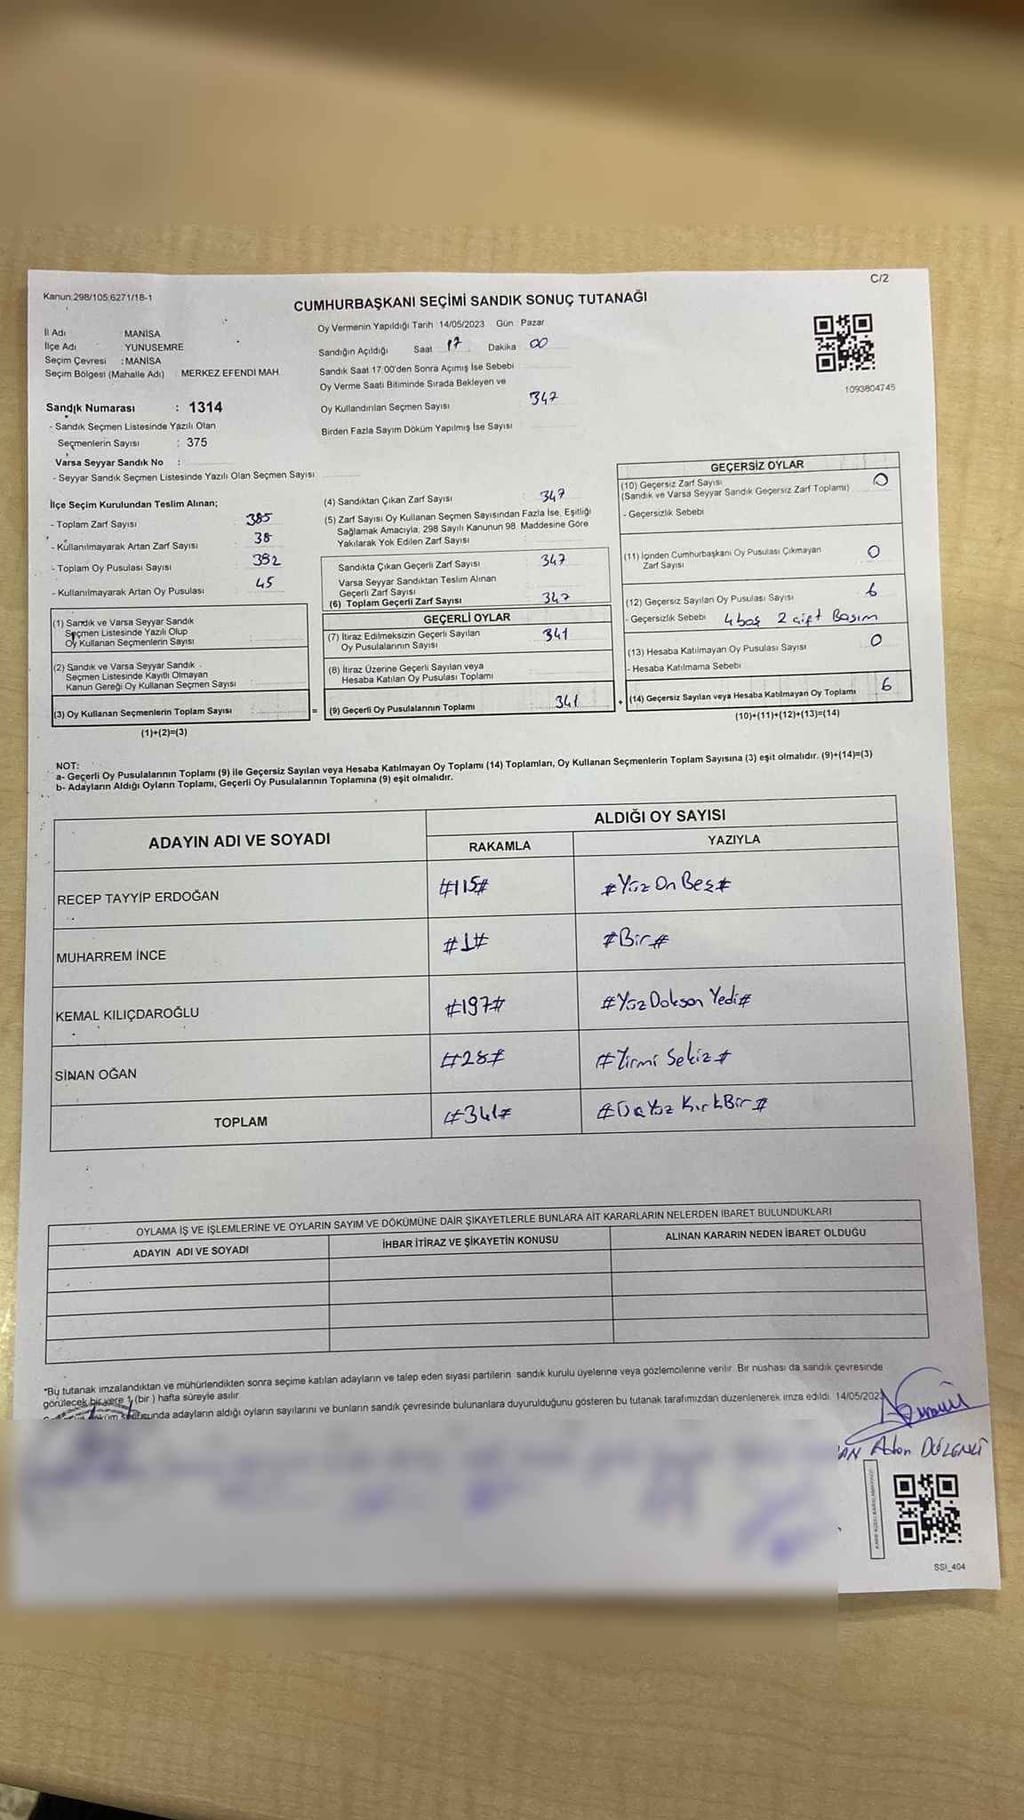 C/2
Kanun:298/105;6271/18-1
CUMHURBAŞKANI SEÇİMİ SANDIK SONUÇ TUTANAĞI
İl Adı : MANİSA
İlçe Adı : YUNUSEMRE
Seçim Çevresi : MANİSA
Seçim Bölgesi (Mahalle Adı) : MERKEZ EFENDİ MAH.
Sandık Numarası : 1314
- Sandık Seçmen Listesinde Yazılı Olan
Seçmenlerin Sayısı : 375
Varsa Seyyar Sandık No :
- Seyyar Sandık Seçmen Listesinde Yazılı Olan Seçmen Sayısı
Oy Vermenin Yapıldığı Tarih 14/05/2023 Gün Pazar
Sandığın Açıldığı Saat 17 Dakika 00
Sandık Saat 17:00'den Sonra Açılmış İse Sebebi
Oy Verme Saati Bitiminde Sırada Bekleyen ve
Oy Kullandırılan Seçmen Sayısı 347
Birden Fazla Sayım Döküm Yapılmış İse Sayısı
1093804745
İlçe Seçim Kurulundan Teslim Alınan;
- Toplam Zarf Sayısı 385
- Kullanılmayarak Artan Zarf Sayısı 38
- Toplam Oy Pusulası Sayısı 392
- Kullanılmayarak Artan Oy Pusulası 45
(1) Sandık ve Varsa Seyyar Sandık
Seçmen Listesinde Yazılı Olup
Oy Kullanan Seçmenlerin Sayısı
(2) Sandık ve Varsa Seyyar Sandık
Seçmen Listesinde Kayıtlı Olmayan
Kanun Gereği Oy Kullanan Seçmen Sayısı
(3) Oy Kullanan Seçmenlerin Toplam Sayısı
(1)+(2)=(3)
(4) Sandıktan Çıkan Zarf Sayısı 347
(5) Zarf Sayısı Oy Kullanan Seçmen Sayısından Fazla İse, Eşitliği
Sağlamak Amacıyla, 298 Sayılı Kanunun 98. Maddesine Göre
Yakılarak Yok Edilen Zarf Sayısı
Sandıkta Çıkan Geçerli Zarf Sayısı 347
Varsa Seyyar Sandıktan Teslim Alınan
Geçerli Zarf Sayısı
(6) Toplam Geçerli Zarf Sayısı 347
GEÇERLİ OYLAR
(7) İtiraz Edilmeksizin Geçerli Sayılan
Oy Pusulalarının Sayısı 341
(8) İtiraz Üzerine Geçerli Sayılan veya
Hesaba Katılan Oy Pusulası Toplamı
= (9) Geçerli Oy Pusulalarının Toplamı 341
GEÇERSİZ OYLAR
(10) Geçersiz Zarf Sayısı 0
(Sandık ve Varsa Seyyar Sandık Geçersiz Zarf Toplamı)
- Geçersizlik Sebebi
(11) İçinden Cumhurbaşkanı Oy Pusulası Çıkmayan 0
Zarf Sayısı
(12) Geçersiz Sayılan Oy Pusulası Sayısı 6
- Geçersizlik Sebebi 4 boş 2 çift Basım
(13) Hesaba Katılmayan Oy Pusulası Sayısı 0
- Hesaba Katılmama Sebebi
+ (14) Geçersiz Sayılan veya Hesaba Katılmayan Oy Toplamı 6
(10)+(11)+(12)+(13)=(14)
NOT:
a- Geçerli Oy Pusulalarının Toplamı (9) ile Geçersiz Sayılan veya Hesaba Katılmayan Oy Toplamı (14) Toplamları, Oy Kullanan Seçmenlerin Toplam Sayısına (3) eşit olmalıdır. (9)+(14)=(3)
b- Adayların Aldığı Oyların Toplamı, Geçerli Oy Pusulalarının Toplamına (9) eşit olmalıdır.
ADAYIN ADI VE SOYADI
ALDIĞI OY SAYISI
RAKAMLA YAZIYLA
RECEP TAYYİP ERDOĞAN #115# #Yüz On Beş#
MUHARREM İNCE #1# #Bir#
KEMAL KILIÇDAROĞLU #197# #Yüz Doksan Yedi#
SİNAN OĞAN #28# #Yirmi Sekiz#
TOPLAM #341# #Üç Yüz Kırk Bir#
OYLAMA İŞ VE İŞLEMLERİNE VE OYLARIN SAYIM VE DÖKÜMÜNE DAİR ŞİKAYETLERLE BUNLARA AİT KARARLARIN NELERDEN İBARET BULUNDUKLARI
ADAYIN ADI VE SOYADI İHBAR İTİRAZ VE ŞİKAYETİN KONUSU ALINAN KARARIN NEDEN İBARET OLDUĞU
*Bu tutanak imzalandıktan ve mühürlendikten sonra seçime katılan adayların ve talep eden siyasi partilerin sandık kurulu üyelerine veya gözlemcilerine verilir. Bir nüshası da sandık çevresinde
görülecek bir yere 1 (bir) hafta süreyle asılır.
adayların aldığı oyların sayılarını ve bunların sandık çevresinde bulunanlara duyurulduğunu gösteren bu tutanak tarafımızdan düzenlenerek imza edildi. 14/05/2023
SSI_404